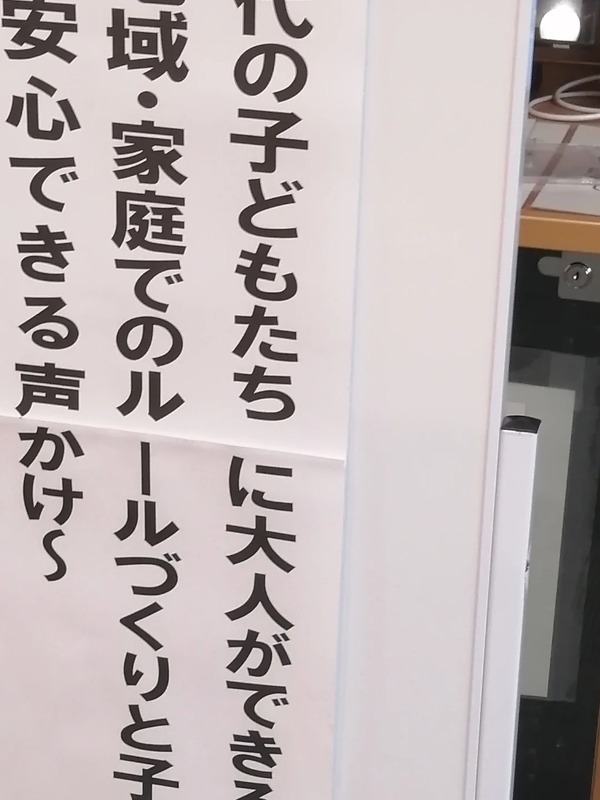 代の子どもたちに大人ができる
域・家庭でのルールづくりと子
安心できる声かけ～